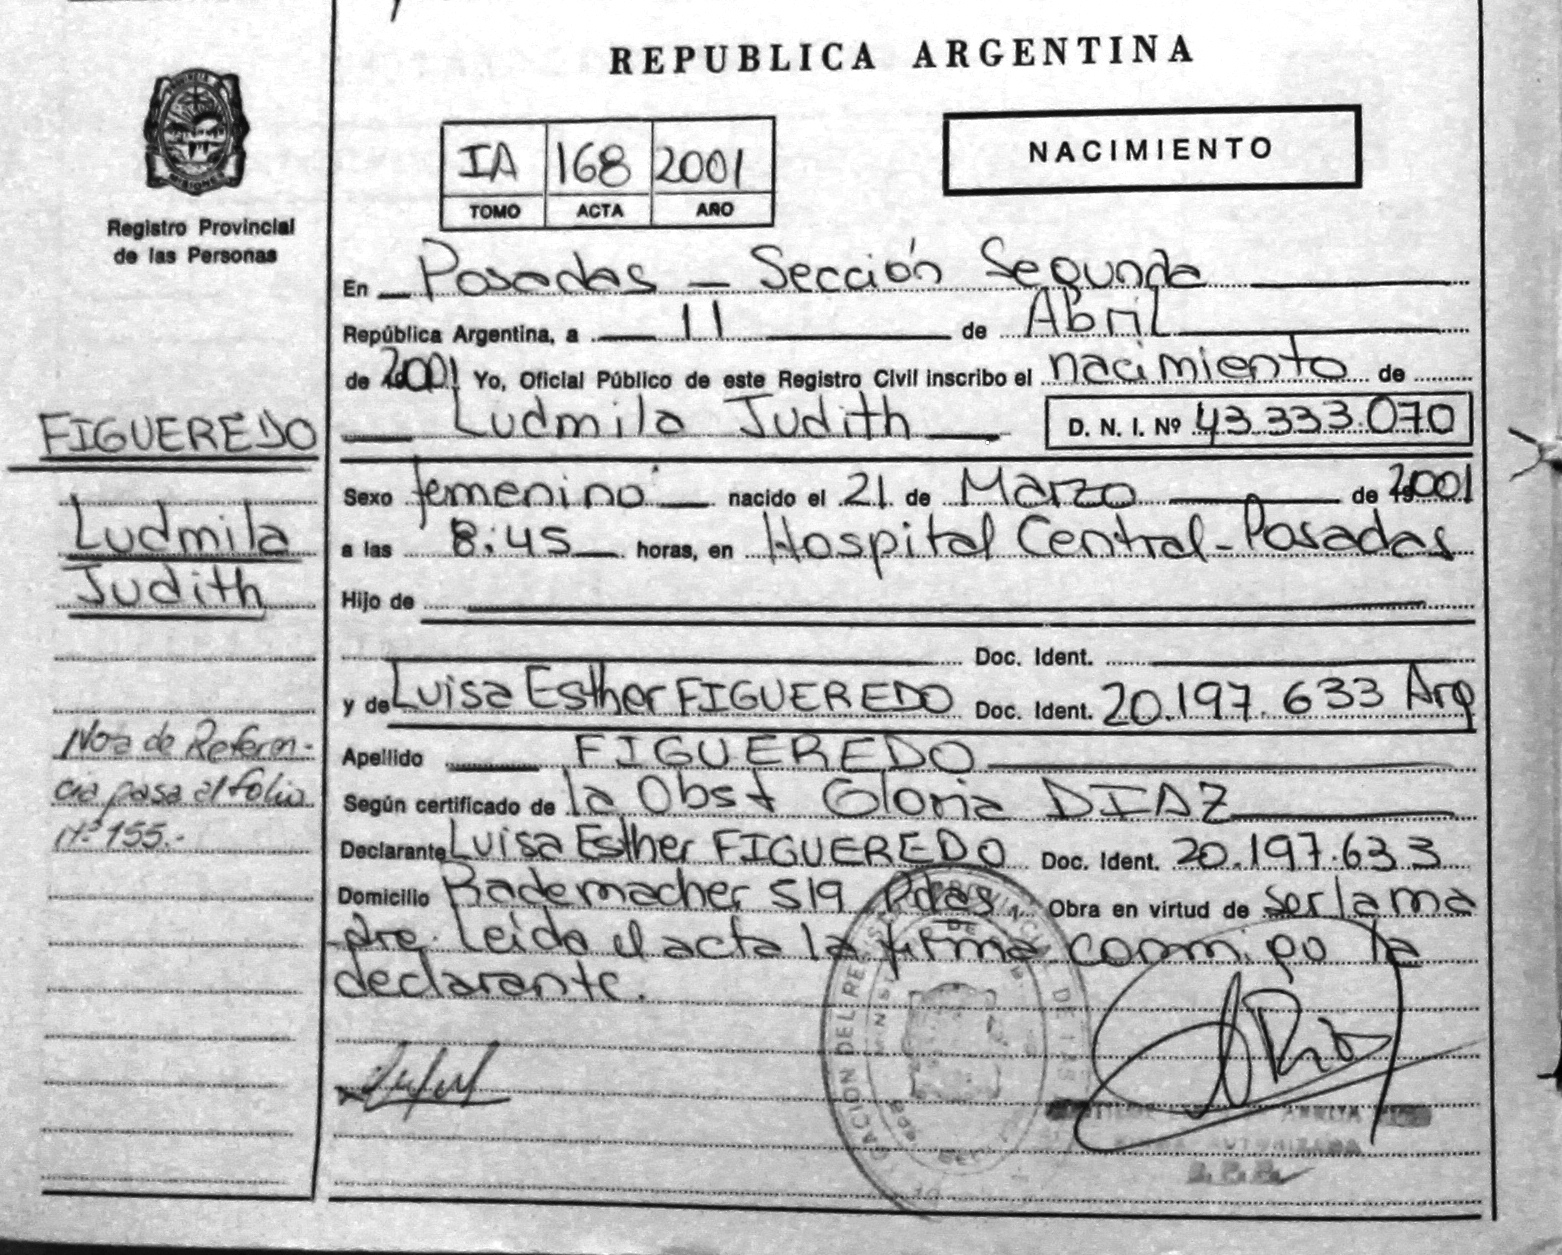 REPUBLICA ARGENTINA
PROVINCIA DE
MISIONES
Registro Provincial
de las Personas
IA 168 2001
TOMO ACTA AÑO
NACIMIENTO
En Posadas - Sección Segunda
República Argentina, a 11 de Abril
de 2001 Yo, Oficial Público de este Registro Civil inscribo el nacimiento de
Ludmila Judith D. N. I. Nº 43.333.070
FIGUEREDO
Ludmila
Judith
Sexo femenino nacido el 21 de Marzo de 2001
a las 8:45 horas, en Hospital Central-Posadas
Hijo de
Doc. Ident.
y de Luisa Esther FIGUEREDO Doc. Ident. 20.197.633 Arg
Apellido FIGUEREDO
Según certificado de la Obst Gloria DIAZ
Declarante Luisa Esther FIGUEREDO Doc. Ident. 20.197.633
Domicilio Rademacher 519 Pdas Obra en virtud de ser la ma
dre. Leida el acta la firma conmigo la
declarante.
Nota de Referen-
cia pasa al folio
Nº 155.-
AUTORIZADA